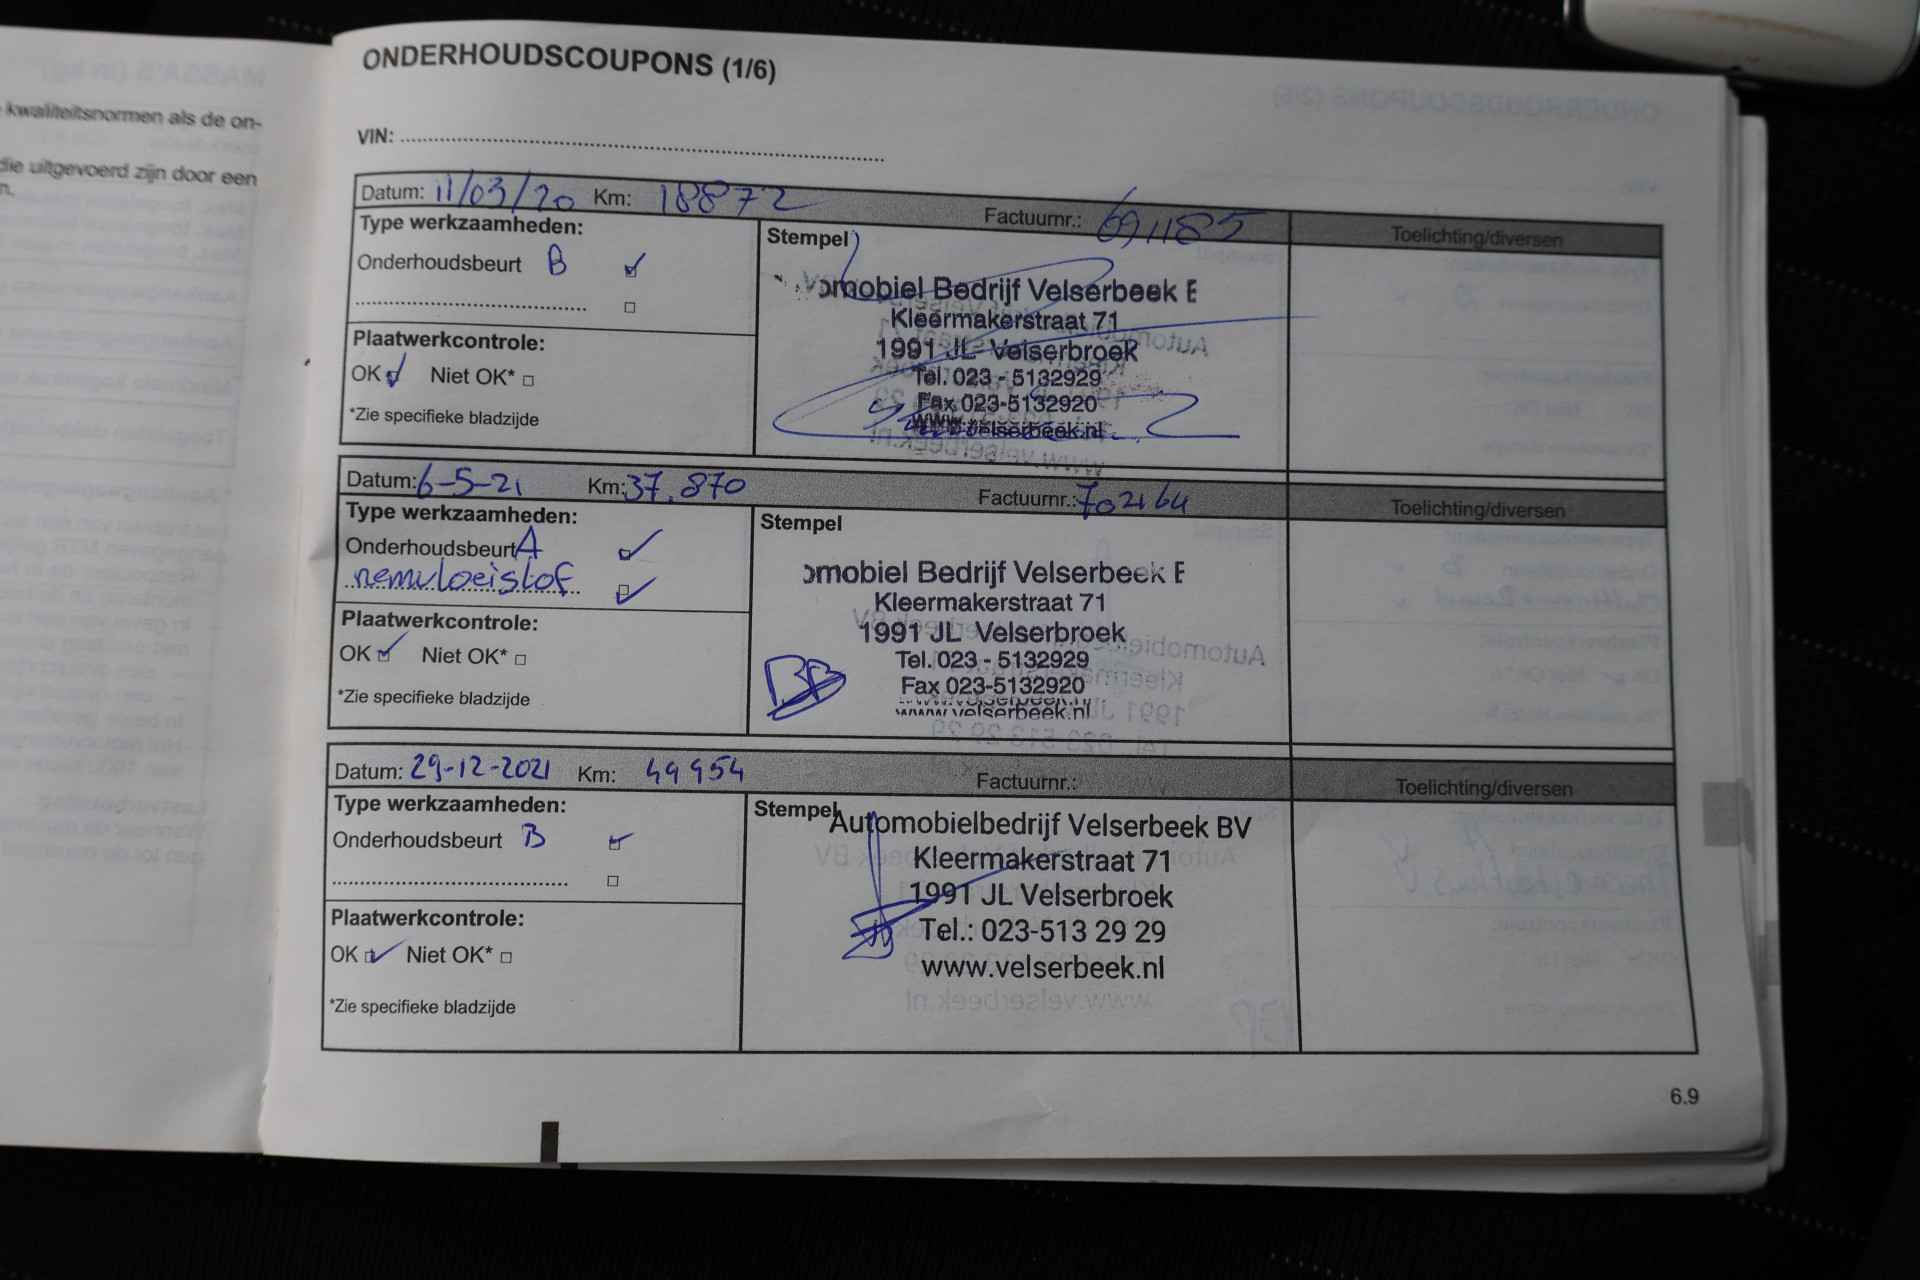 kwaliteitsnormen als de on-
die uitgevoerd zijn door een
n.
ONDERHOUDSCOUPONS (1/6)
VIN:
Datum: 11/03/20 Km: 18872 Factuurnr.: 691185
Type werkzaamheden: Stempel Toelichting/diversen
Onderhoudsbeurt B
omobiel Bedrijf Velserbeek B
Kleermakerstraat 71
1991 JL Velserbroek
Plaatwerkcontrole:
OK Niet OK*
Tel. 023 - 5132929
Fax 023-5132920
www.velserbeek.nl
*Zie specifieke bladzijde
Datum: 6-5-21 Km: 37.870 Factuurnr.: 702164
Type werkzaamheden: Stempel Toelichting/diversen
Onderhoudsbeurt A
remvloeistof
omobiel Bedrijf Velserbeek B
Kleermakerstraat 71
1991 JL Velserbroek
Plaatwerkcontrole:
OK Niet OK*
Tel. 023 - 5132929
Fax 023-5132920
www.velserbeek.nl
BB
*Zie specifieke bladzijde
Datum: 29-12-2021 Km: 49954 Factuurnr.:
Type werkzaamheden: Stempel Toelichting/diversen
Onderhoudsbeurt B
Automobielbedrijf Velserbeek BV
Kleermakerstraat 71
1991 JL Velserbroek
Tel.: 023-513 29 29
www.velserbeek.nl
Plaatwerkcontrole:
OK Niet OK*
*Zie specifieke bladzijde
6.9